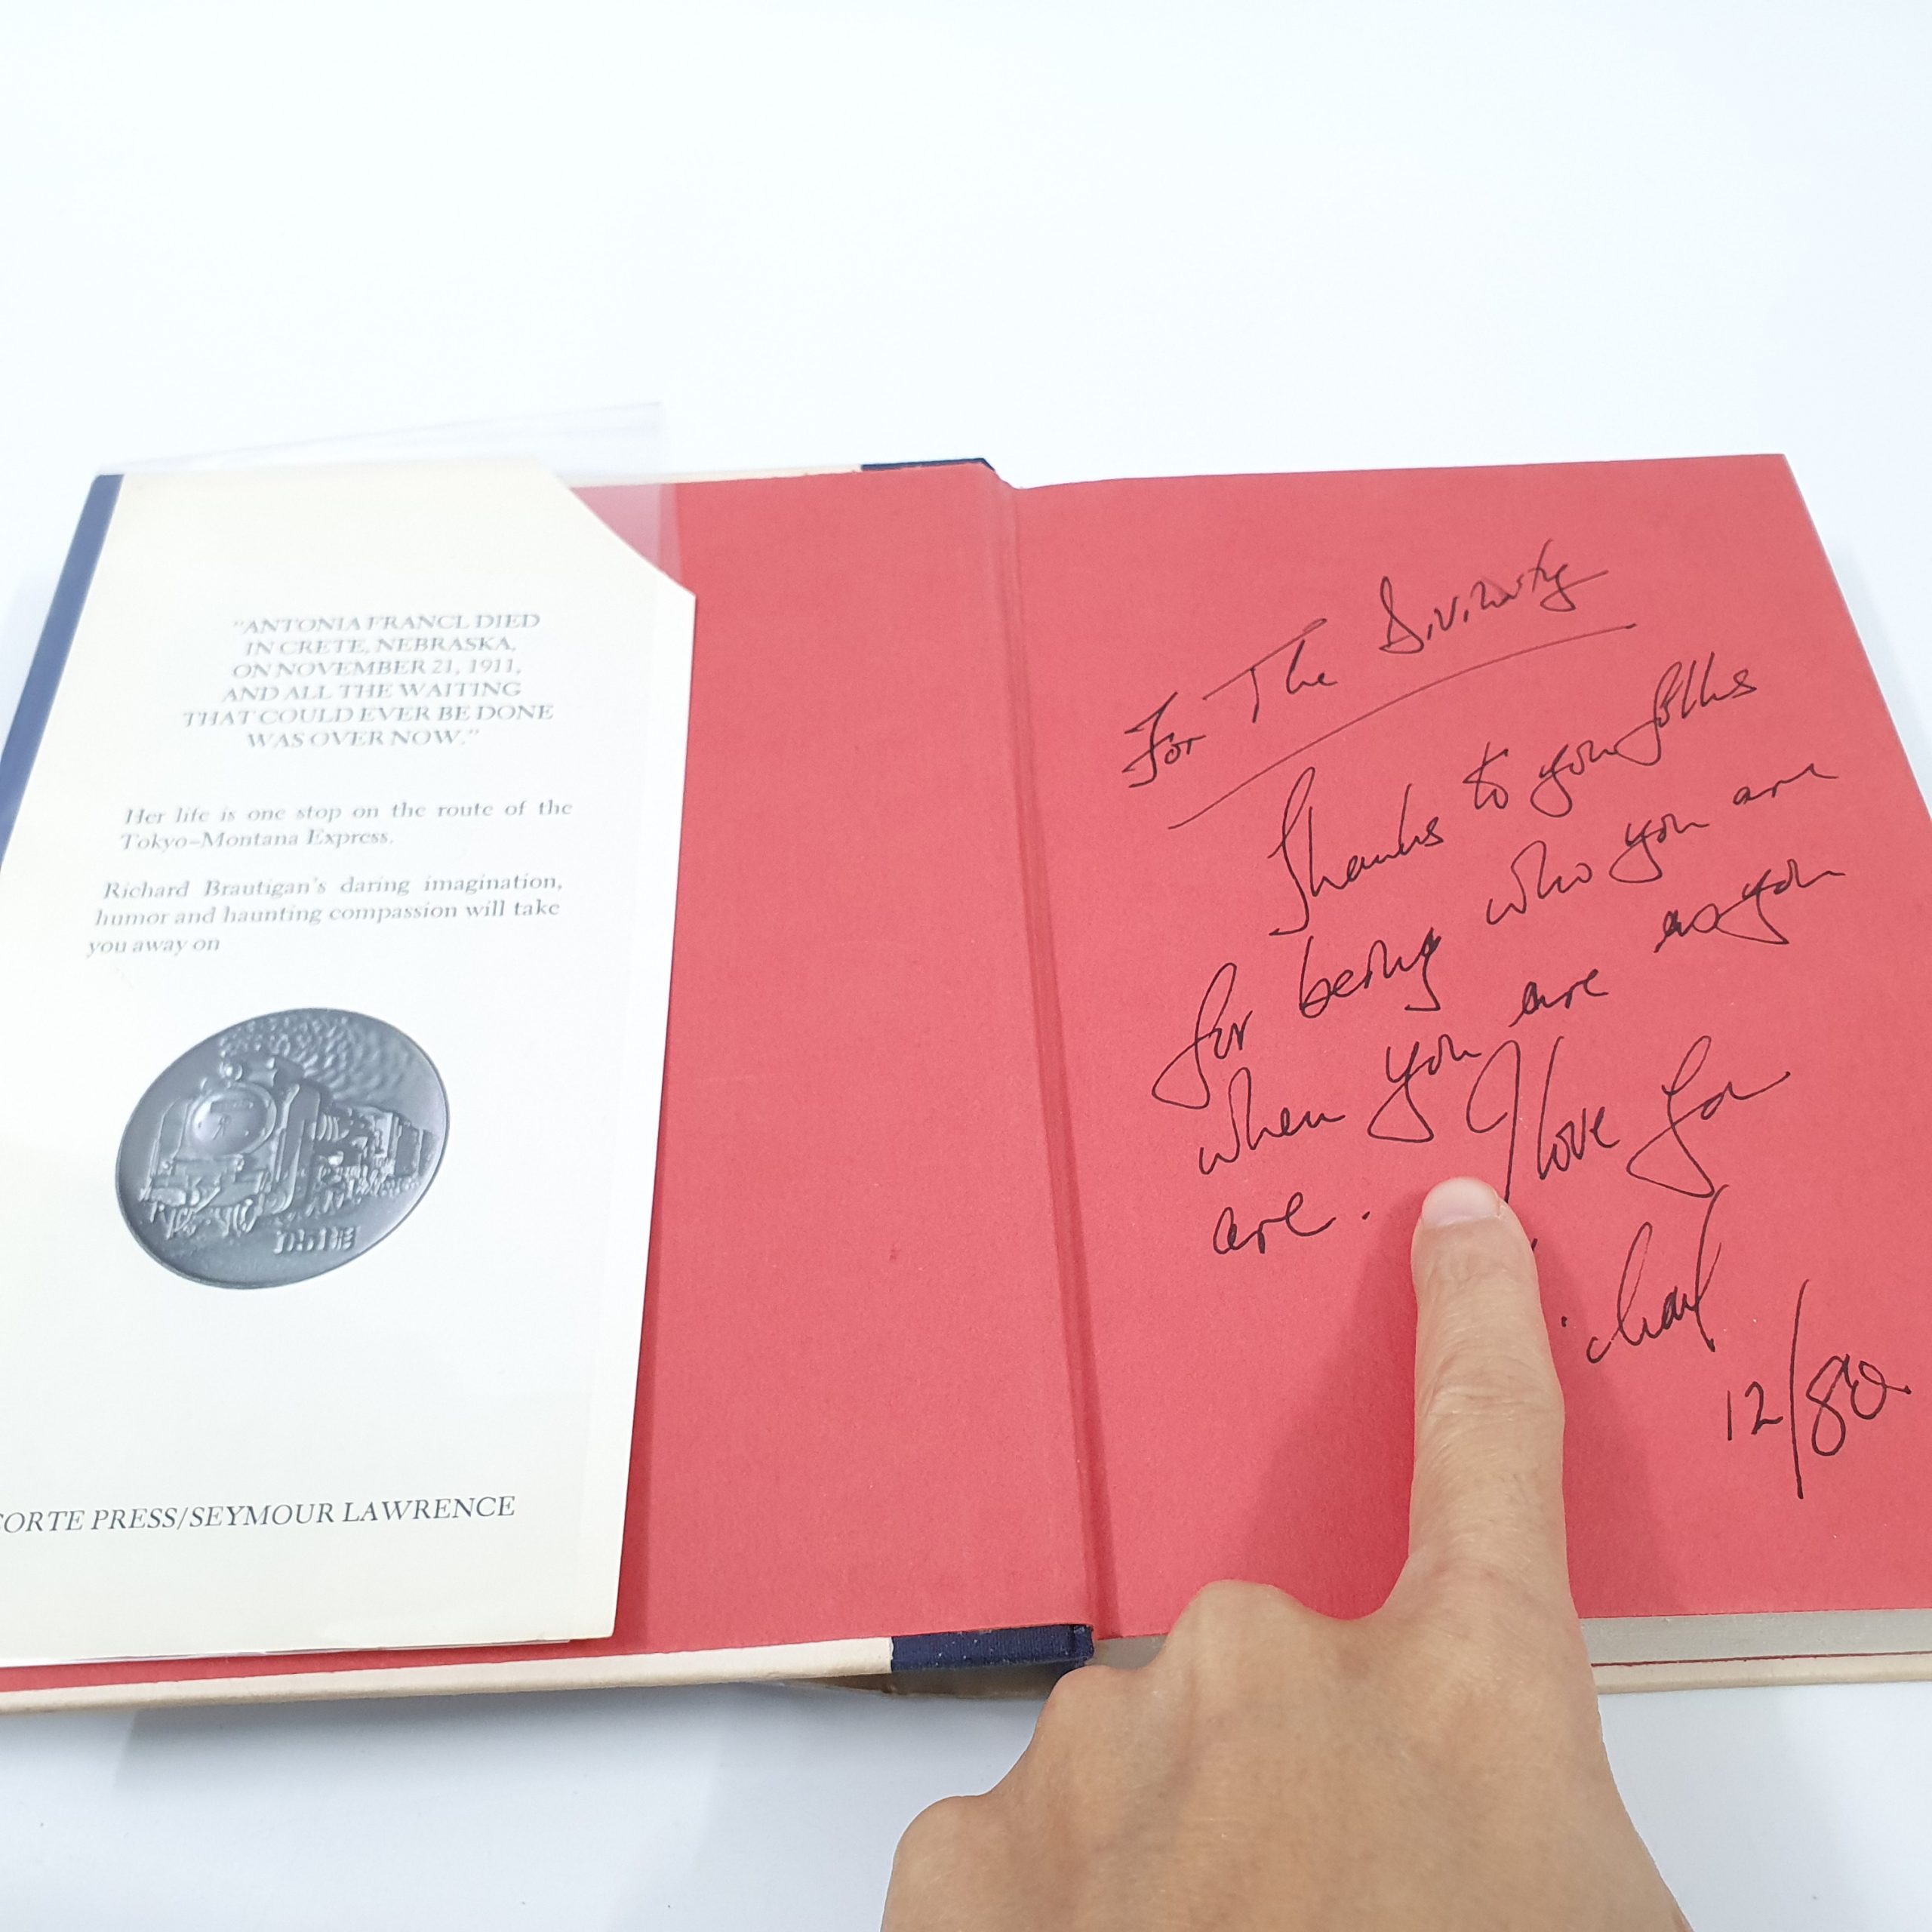 "ANTONIA FRANCL DIED
IN CRETE, NEBRASKA,
ON NOVEMBER 21, 1911,
AND ALL THE WAITING
THAT COULD EVER BE DONE
WAS OVER NOW."
Her life is one stop on the route of the
Tokyo–Montana Express.
Richard Brautigan's daring imagination,
humor and haunting compassion will take
you away on
D51
CORTE PRESS/SEYMOUR LAWRENCE
For The Divinity
Thanks to you folks
for being who you are
when you are as you
are. I love you
ichael
12/80